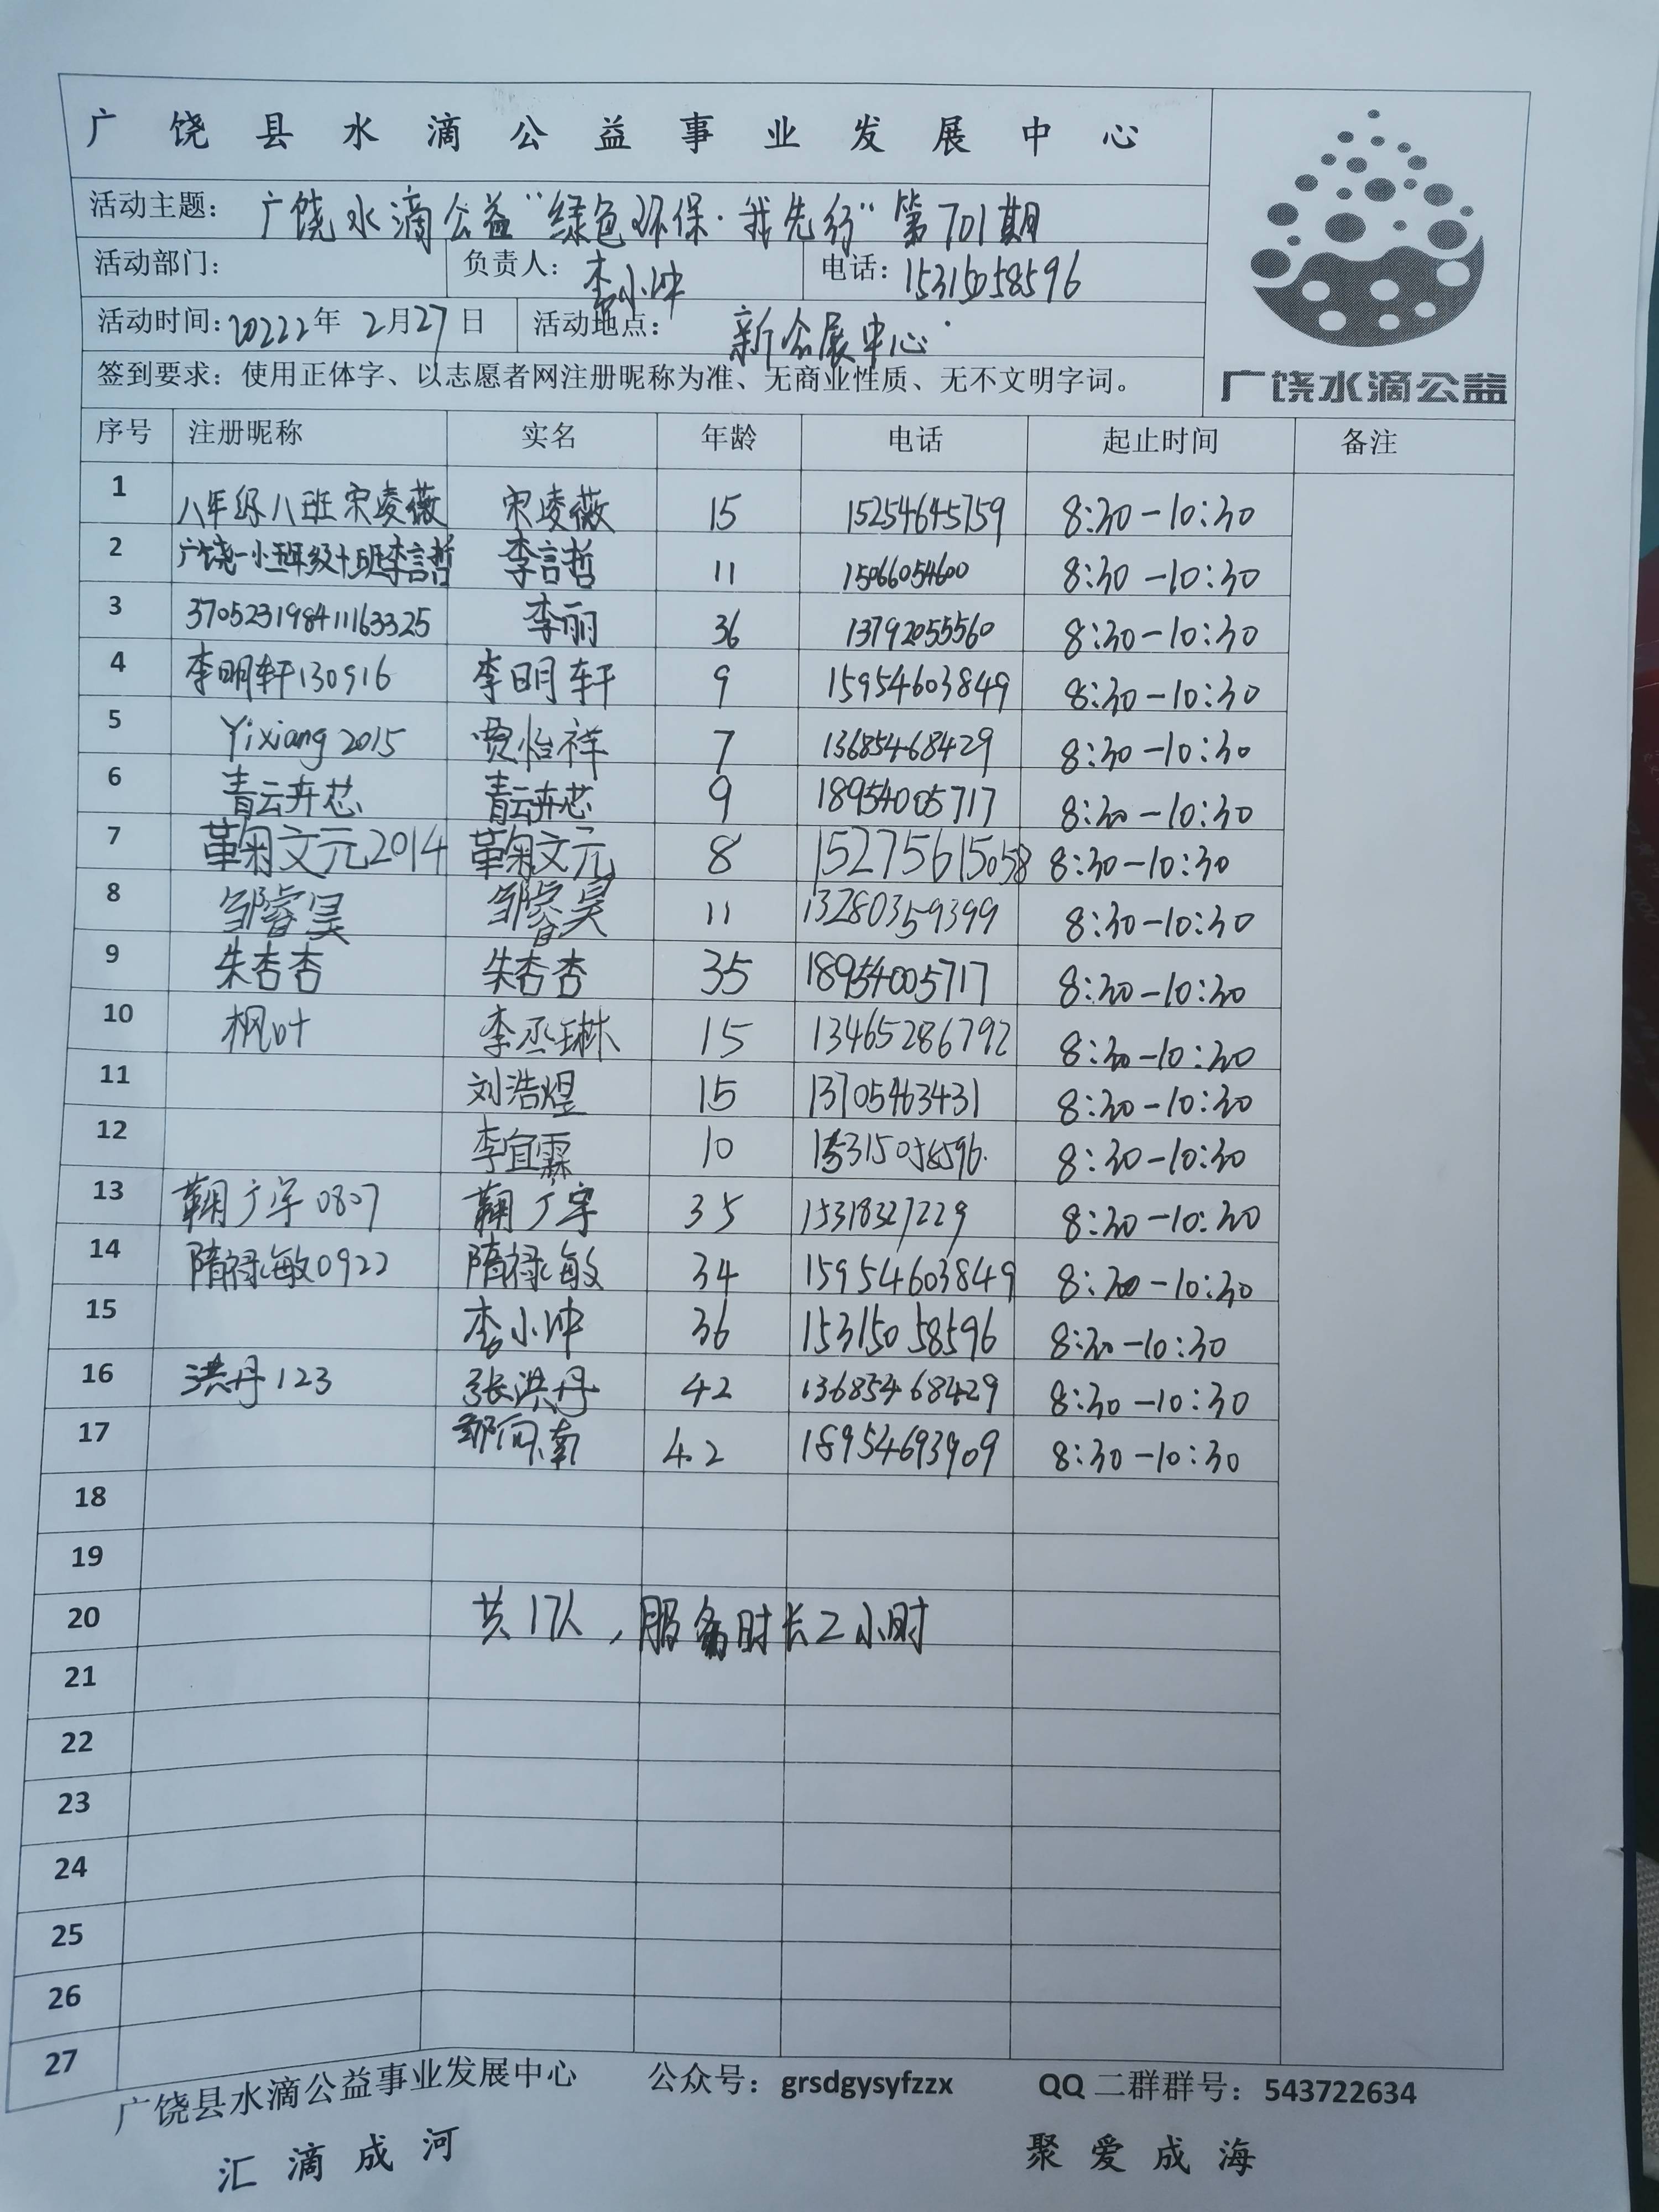 广饶县水滴公益事业发展中心
活动主题：广饶水滴公益"绿色环保·我先行"第701期
活动部门： 负责人：李小冲 电话：15315058596
活动时间：20222年 2月27日 活动地点：新会展中心
签到要求：使用正体字、以志愿者网注册昵称为准、无商业性质、无不文明字词。
广饶水滴公益
序号 注册昵称 实名 年龄 电话 起止时间 备注
1 八年级八班宋凌薇 宋凌薇 15 15254645759 8:30-10:30
2 广饶一小五年级十班李言哲 李言哲 11 15066054600 8:30-10:30
3 370523198411163325 李丽 36 13792055560 8:30-10:30
4 李明轩130916 李明轩 9 15954603849 8:30-10:30
5 Yixiang2015 贾怡祥 7 13685468429 8:30-10:30
6 青云卉芯 青云卉芯 9 18954005717 8:30-10:30
7 鞠文元2014 鞠文元 8 15275615058 8:30-10:30
8 邹睿昊 邹睿昊 11 13280359399 8:30-10:30
9 朱杏杏 朱杏杏 35 18954005717 8:30-10:30
10 枫叶 李丞琳 15 13465286792 8:30-10:30
11 刘浩煜 15 13705463431 8:30-10:30
12 李宜霖 10 15315058596 8:30-10:30
13 鞠广宇0807 鞠广宇 35 15318327229 8:30-10:30
14 隋禄敏0922 隋禄敏 34 15954603849 8:30-10:30
15 李小冲 36 15315058596 8:30-10:30
16 洪丹123 张洪丹 42 13685468429 8:30-10:30
17 邹向南 42 18954693909 8:30-10:30
18
19
20 共17人，服务时长2小时
21
22
23
24
25
26
27
广饶县水滴公益事业发展中心 公众号：grsdgysyfzzx QQ二群群号：543722634
汇滴成河 聚爱成海